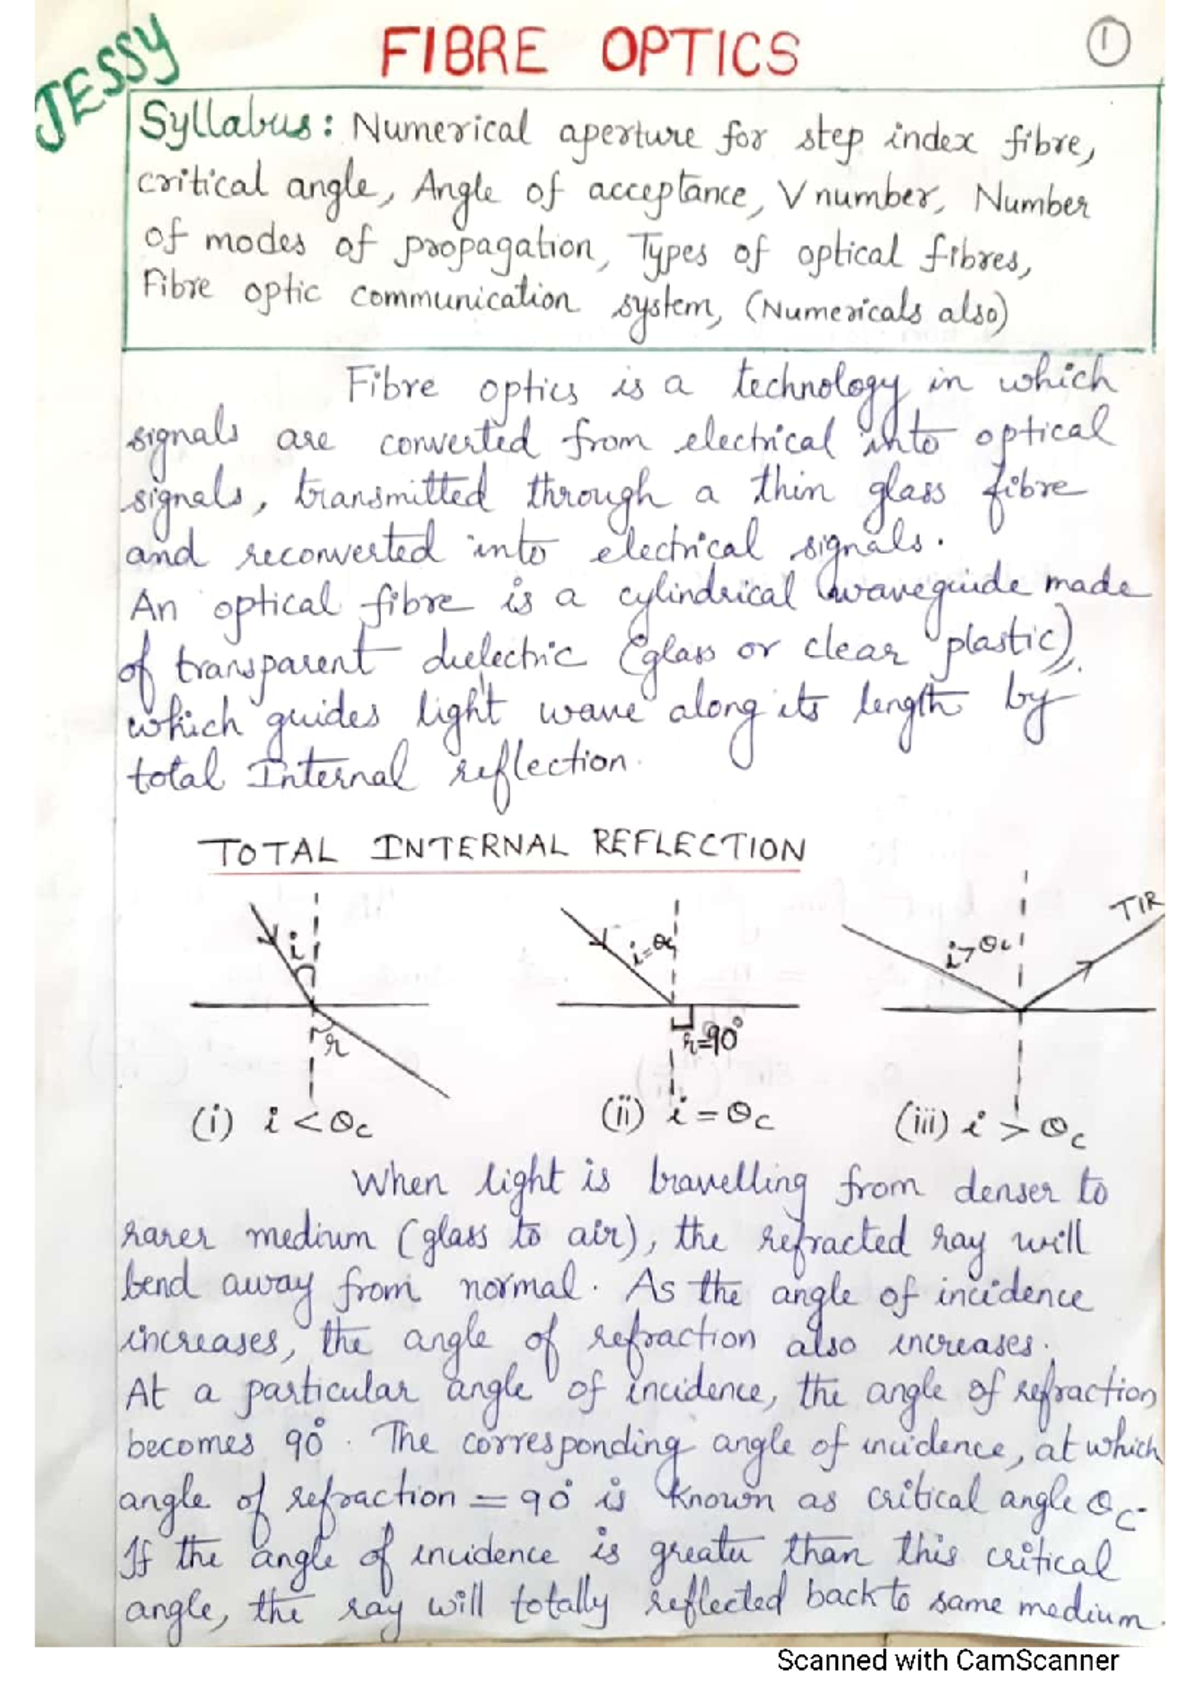 JESSY
FIBRE OPTICS
1
Syllabus: Numerical aperture for step index fibre,
critical angle, Angle of acceptance, V number, Number
of modes of propagation, Types of optical fibres,
Fibre optic communication system, (Numericals also)
Fibre optics is a technology in which
signals are converted from electrical into optical
signals, transmitted through a thin glass fibre
and reconverted into electrical signals.
An optical fibre is a cylindrical waveguide made
of transparent dielectric (glass or clear plastic),
which guides light wave along its length by
total Internal reflection.
TOTAL INTERNAL REFLECTION
i
r
(i) i < θc
i=θc
r=90°
(ii) i = θc
i>θc
TIR
(iii) i > θc
When light is travelling from denser to
rarer medium (glass to air), the refracted ray will
bend away from normal. As the angle of incidence
increases, the angle of refraction also increases.
At a particular angle of incidence, the angle of refraction
becomes 90°. The corresponding angle of incidence, at which
angle of refraction = 90° is known as critical angle θc.
If the angle of incidence is greater than this critical
angle, the ray will totally reflected back to same medium.
Scanned with CamScanner